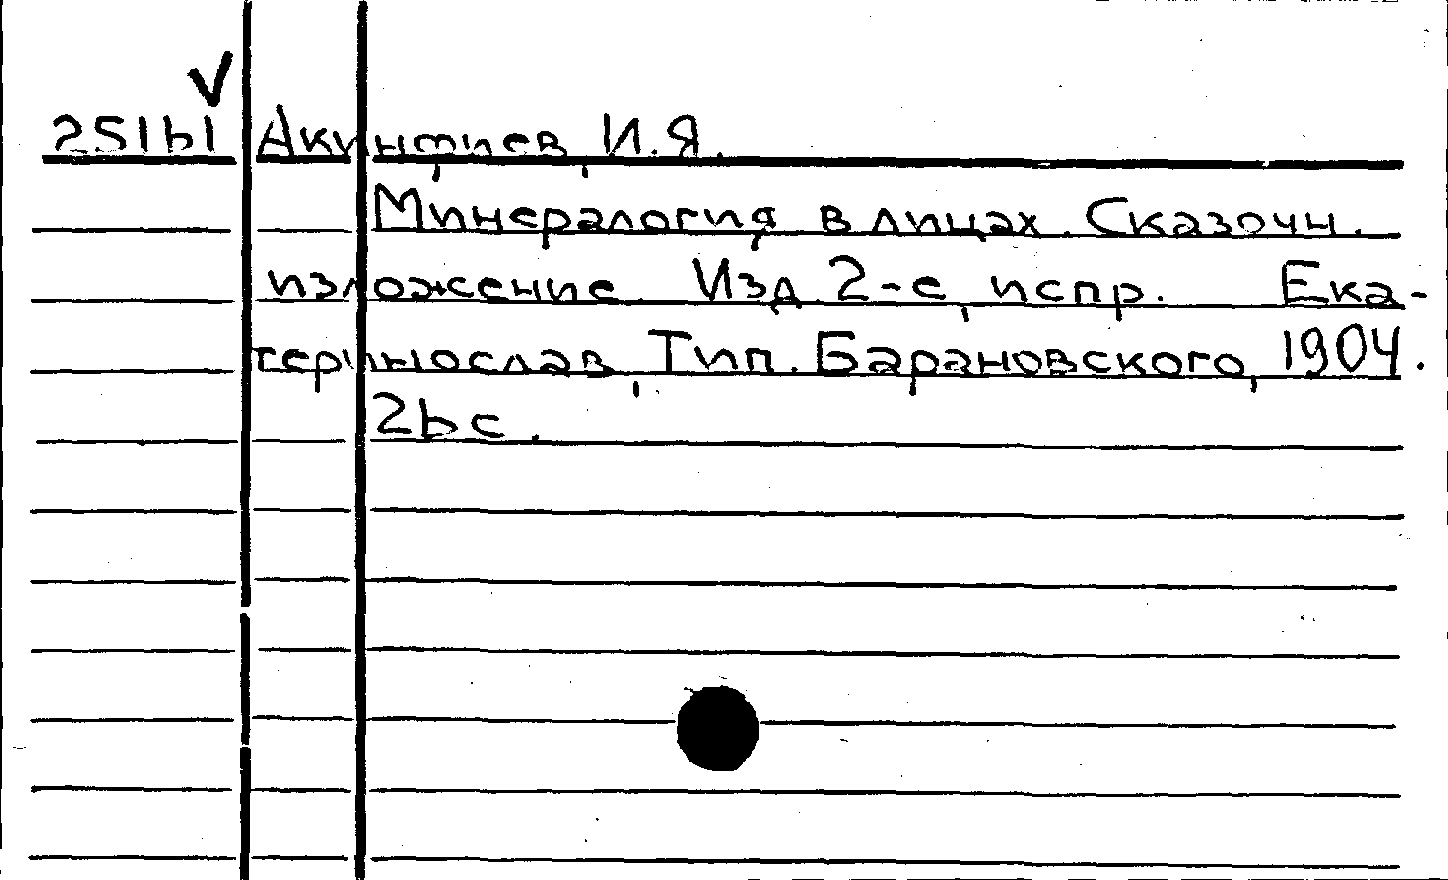 ✓
25161 Акинфиев, И.Я.
Минералогия в лицах. Сказочн.
изложение. Изд. 2-е, испр. Ека-
теринослав, Тип. Барановского, 1904.
26 с.